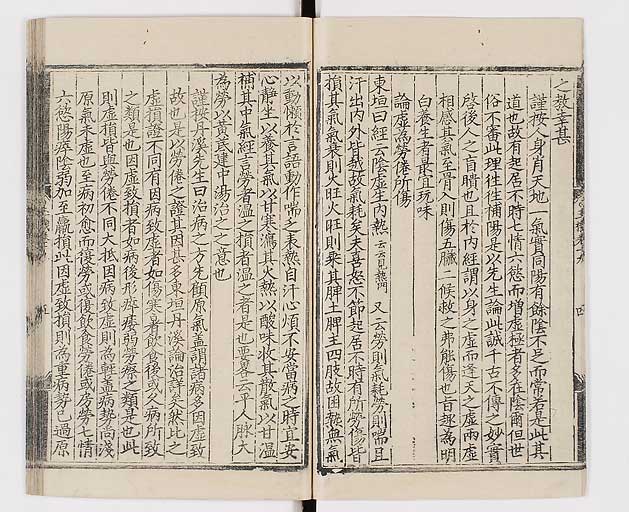 之敎幸甚
謹按人身肖天地一氣實同陽有餘陰不足而常若是此其
道也故有起居不時七情六慾而增虛極者多在陰爾但世
俗不審此理往往補陽是以先生論此誠千古不傳之妙實
啓後人之盲聵也且於內經謂以身之虛而逢天之虛兩虛
相感其氣至骨入則傷五臟工候救之弗能傷也旨趣爲明
白養生者最宜玩味
論虛爲勞倦所傷
東垣曰經云陰虛生內熱云云見熱門又云勞則氣耗勞則喘且
汗出內外皆越故氣耗矣夫喜怒不節起居不時有所勞傷皆
損其氣氣衰則火旺火旺則乘其脾土脾主四肢故困熱無氣
以動懶於言語動作喘乏表熱自汗心煩不安當病之時宜安
心靜坐以養其氣以甘寒瀉其火熱以酸味收其散氣以甘溫
補其中氣經言勞者溫之損者溫之者是也要畧云平人脉大
爲勞以黃芪建中湯治之之意也
謹按丹溪先生曰治病之方先顧原氣蓋謂諸病多因虛致
故也是以勞倦之證其因甚多東垣丹溪論治詳矣然此之
虛損證不同有因病致虛者如傷寒著飮食後或久病所致
之類是也因虛致損者如病後形瘁痿弱勞瘵之類是也此
則虛損皆與勞倦不同大抵因病致虛則爲輕蓋病勢尚淺
原氣未虛也至病初愈而復勞或復飮食勞倦或房勞七情
六慾陽痿陰弱加至羸損此因虛致損則爲重病勢已過原